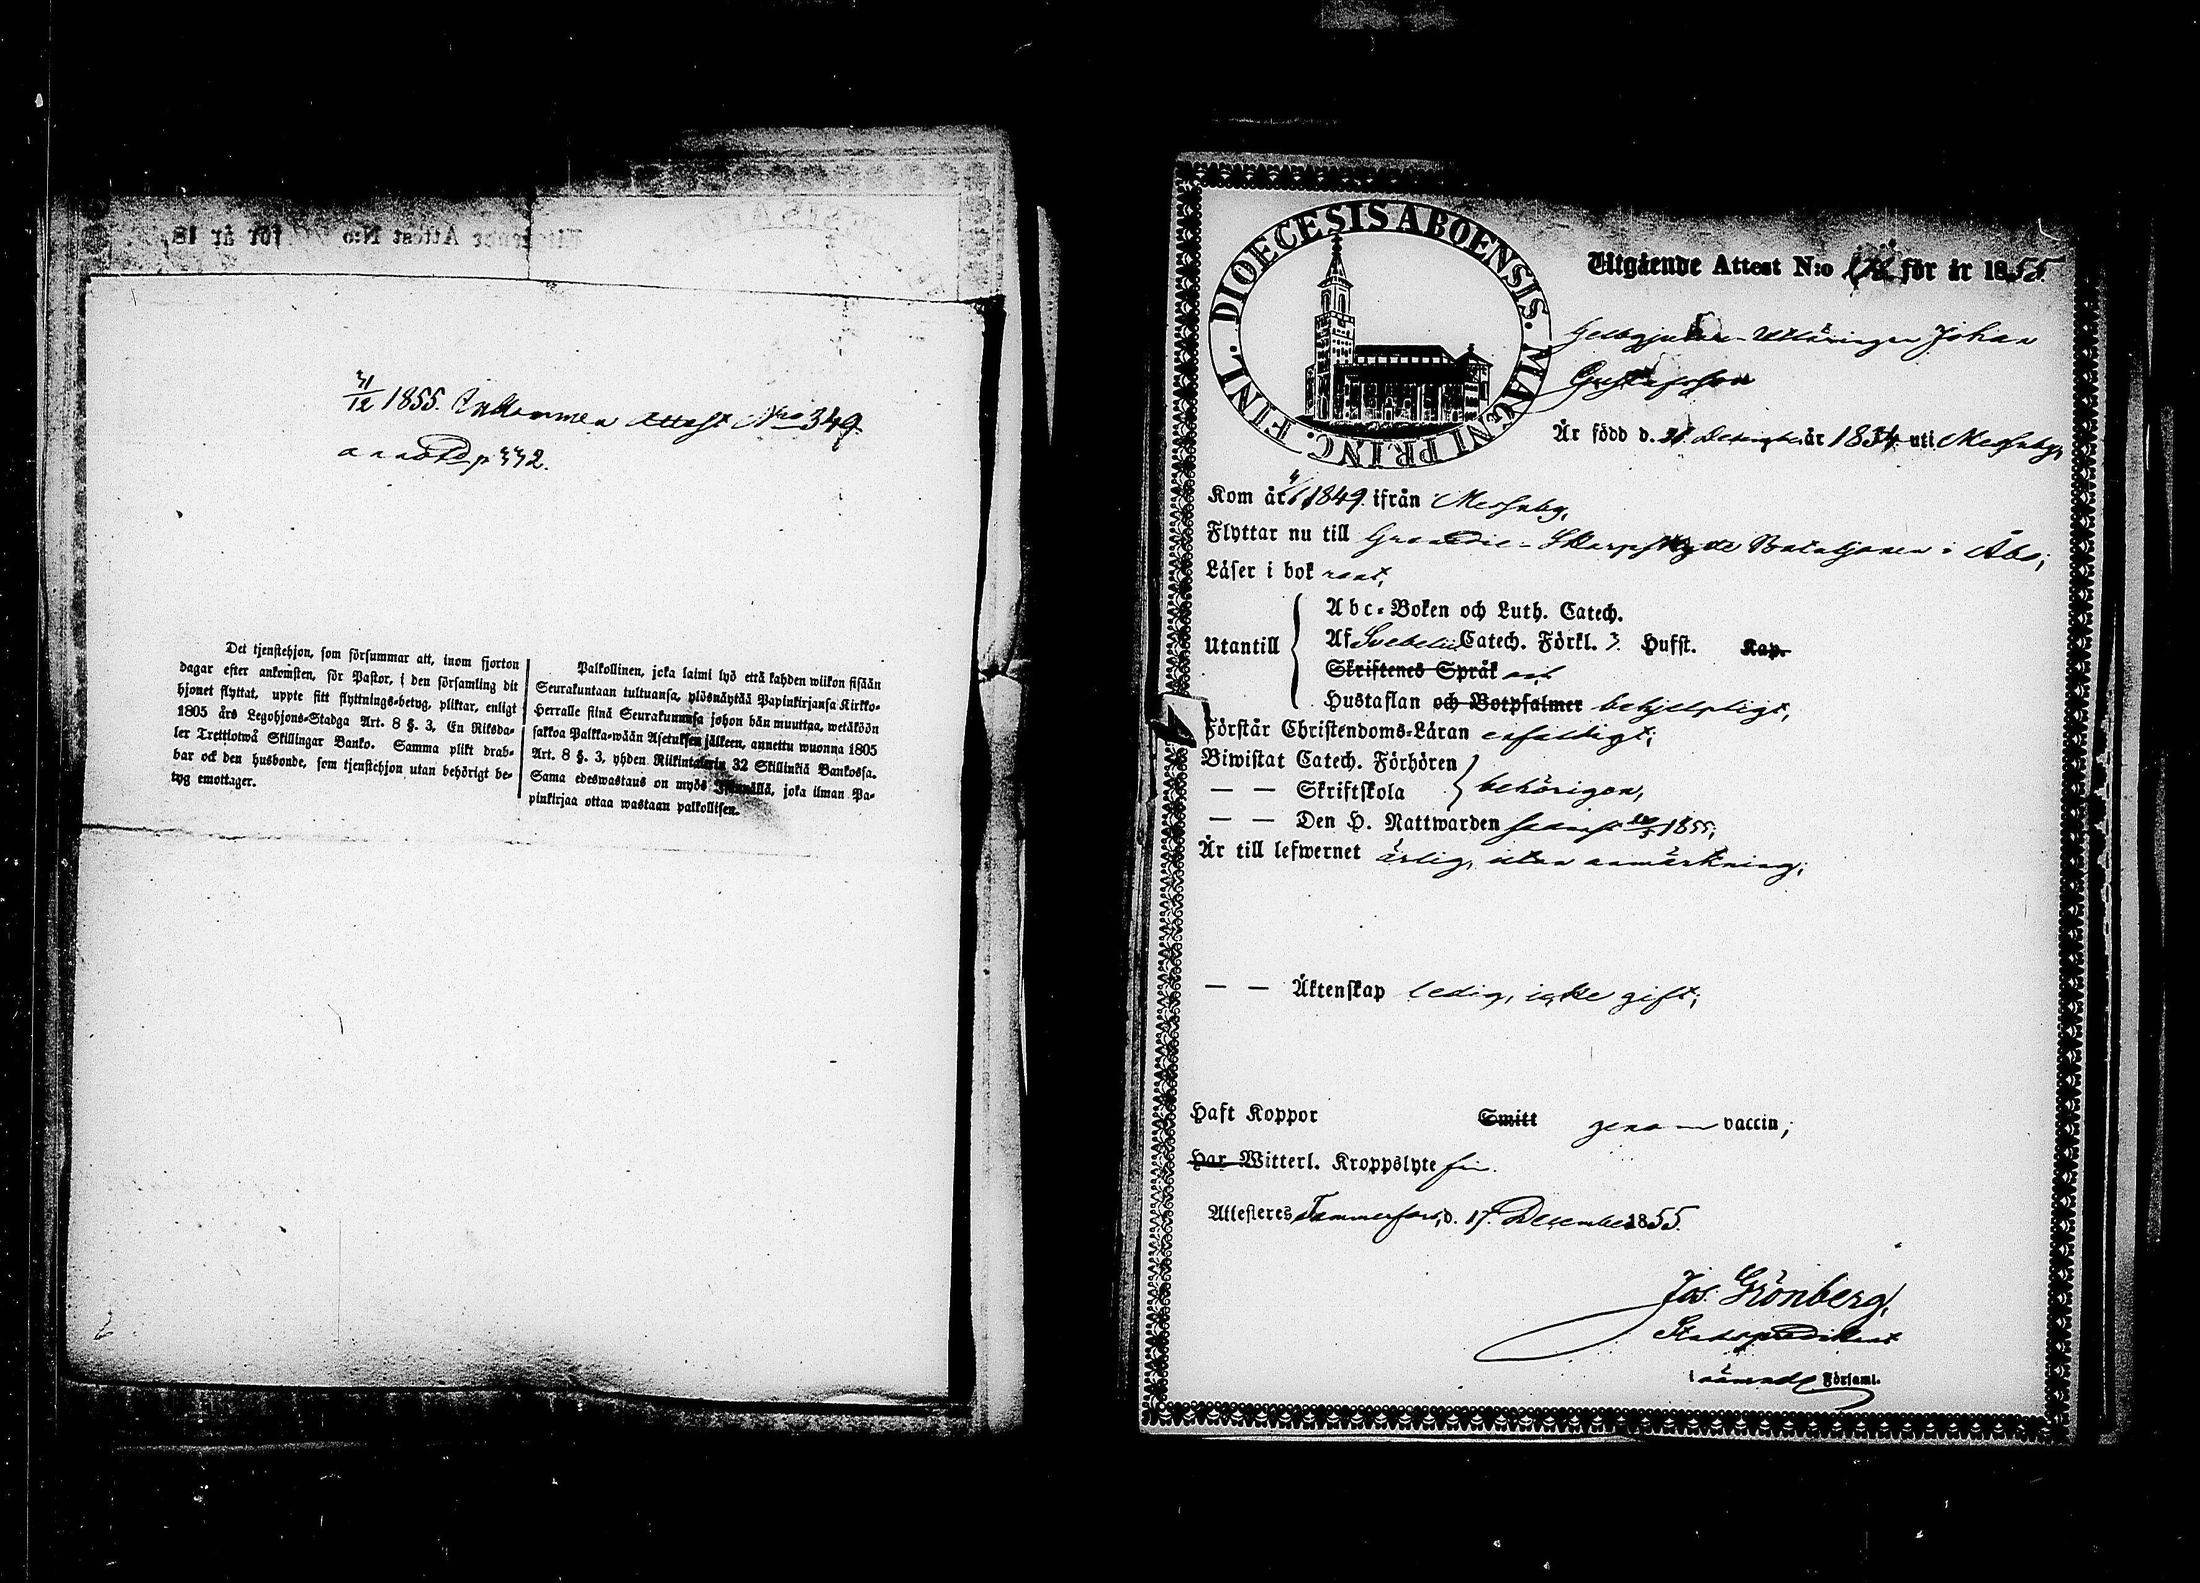 31/12 1855. Inkommen Attest No 349.
annoterad p. 332.
Det tjenstehjon, som försummar att, inom fjorton
dagar efter ankomsten, för Pastor, i den församling dit
hjonet flyttat, uppte sitt flyttnings-betyg, pliktar, enligt
1805 års Legohjons-Stadga Art. 8 §. 3, En Riksda-
ler Trettiotwå Skillingar Banko. Samma plikt drab-
bar ock den husbonde, som tjenstehjon utan behörigt be-
tyg emottager.
Palkollinen, joka laimi lyö että kahden wiikon sisään
Seurakuntaan tultuansa, ylösnäytää Papinkirjansa Kirkko-
Herralle siinä Seurakunnasa johon hän muuttaa, wetäköön
sakkoa Palkka-wään Asetuksen jälkeen, annettu wuonna 1805
Art. 8 §. 3, yhden Riikintalerin 32 Skillinkiä Bankossa.
Sama edeswastaus on myös Isännällä, joka ilman Pa-
pinkirjaa ottaa wastaan palkollisen.
DIOECESIS ABOENSIS. MAGNI PRINC. FINL.
Utgående Attest N:o för år 1855.
Gelbgjutare-Utläringen Johan
Gustafsson
Är född d. 31 December år 1834 uti Messuby,
Kom år 1849. ifrån Messuby,
Flyttar nu till Grenadier-Skarpskytte Bataljonen i Åbo;
Läser i bok rent,
Utantill
Abc-Boken och Luth. Catech.
Af Svebelii Catech. Förkl. 3. Hufst. Kap.
Skriftenes Språk
Hustaflan och Botpsalmer behjelpligt,
Förstår Christendoms-Läran enfaldigt;
Biwistat Catech. Förhören
— — Skriftskola behörigen,
— — Den H. Nattwarden senast 1855;
Är till lefwernet ärlig, utan anmärkning;
— — Äktenskap ledig, icke gift;
Haft Koppor Smitt genom vaccin;
Har Witterl. Kroppslyte fri.
Attesteres Tammerfors, d. 17. December 1855.
Jos. Grönberg,
Stadspredikant
i nämnde Församl.